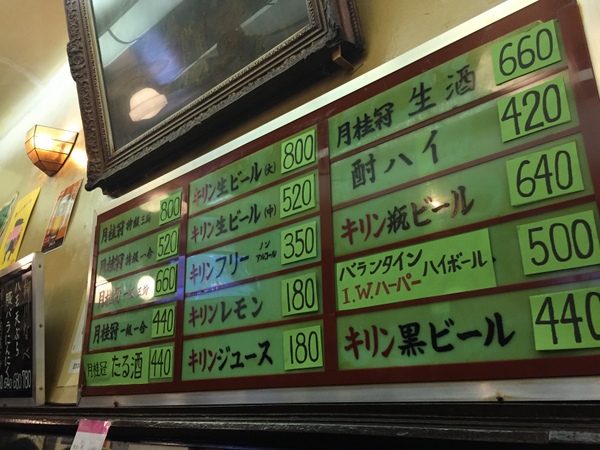 月桂冠 生酒 660
酎ハイ 420
キリン瓶ビール 640
バランタイン ハイボール 500
I.W.ハーパー
キリン黒ビール 440
キリン生ビール(大) 800
キリン生ビール(中) 520
キリンフリー ノンアルコール 350
キリンレモン 180
キリンジュース 180
月桂冠 特級 800
月桂冠 特級一合 520
月桂冠 660
月桂冠 一級一合 440
月桂冠 たる酒 440